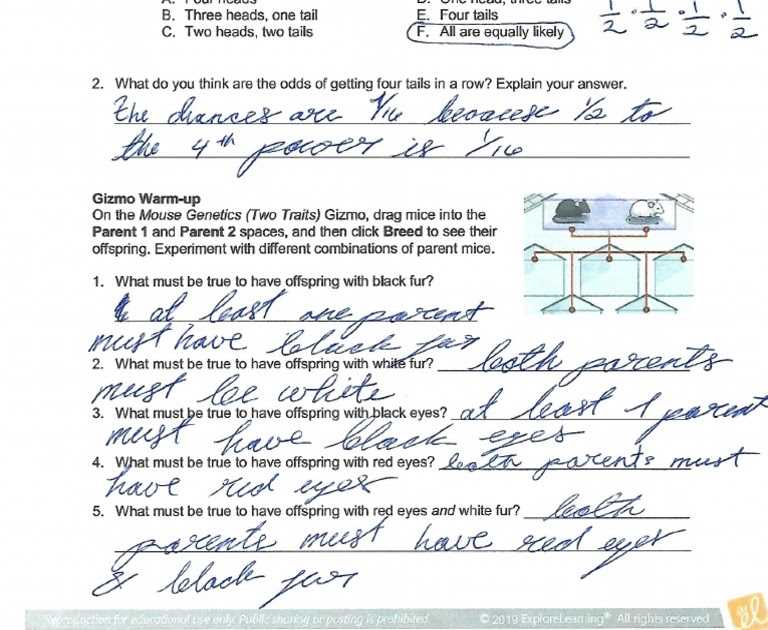 B. Three heads, one tail
C. Two heads, two tails
E. Four tails
F. All are equally likely
1/2 · 1/2 · 1/2 · 1/2
2. What do you think are the odds of getting four tails in a row? Explain your answer.
the chances are 1/16 because 1/2 to
the 4th power is 1/16
Gizmo Warm-up
On the Mouse Genetics (Two Traits) Gizmo, drag mice into the
Parent 1 and Parent 2 spaces, and then click Breed to see their
offspring. Experiment with different combinations of parent mice.
1. What must be true to have offspring with black fur?
at least one parent
must have black fur
2. What must be true to have offspring with white fur? both parents
must be white
3. What must be true to have offspring with black eyes? at least 1 parent
must have black eyes
4. What must be true to have offspring with red eyes? both parents must
have red eyes
5. What must be true to have offspring with red eyes and white fur? both
parents must have red eyes
& black fur
Reproduction for educational use only. Public sharing or posting is prohibited.
© 2019 ExploreLearning® All rights reserved
el